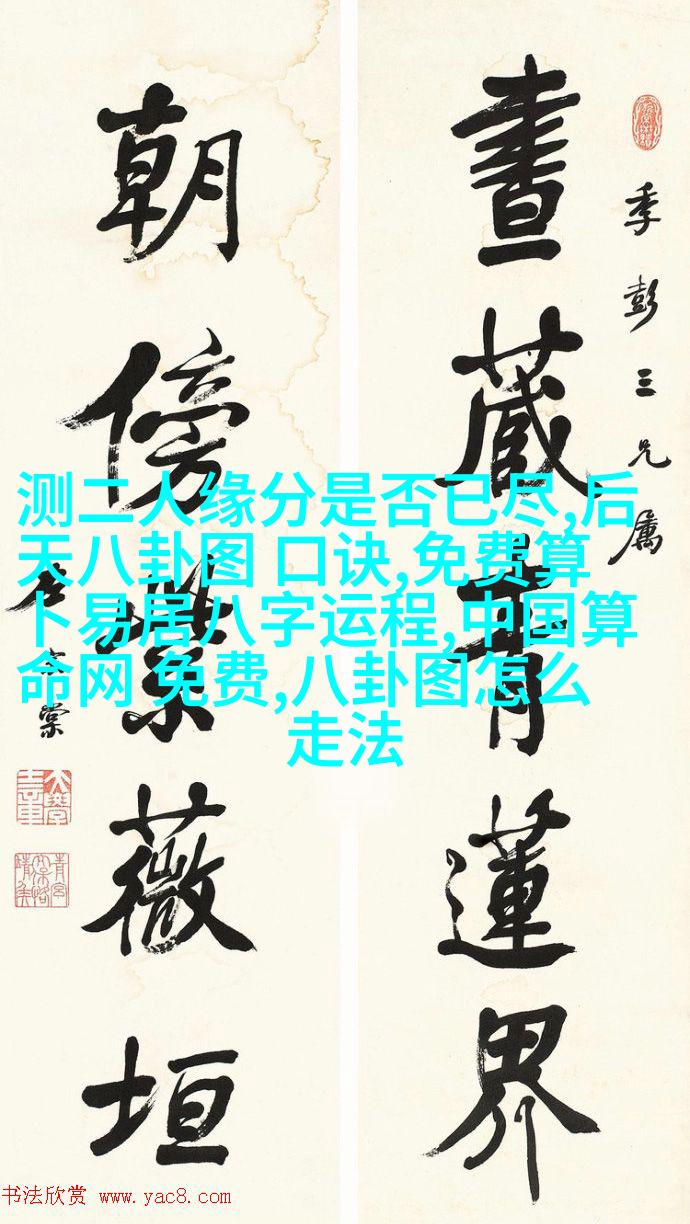 畫藏青蓮界
季彭三兄属
朝傍紫薇垣
左宗棠
测二人缘分是否已尽,后
天八卦图 口诀,免费算
卜易居八字运程,中国算
命网 免费,八卦图怎么
走法
书法欣赏 www.yac8.com